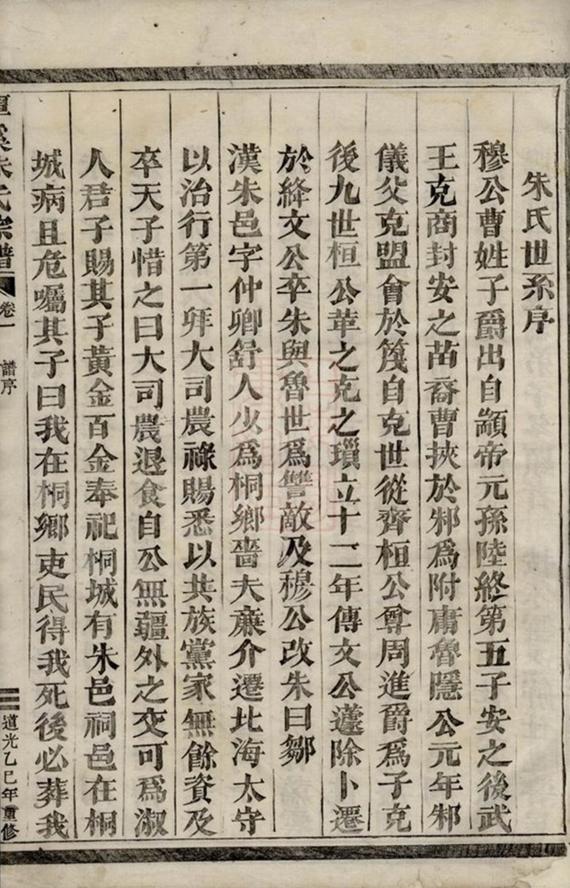 朱氏世系序
穆公曹姓子爵出自顓帝元孫陸終第五子安之後武
王克商封安之苗裔曹挾於邾爲附庸魯隱公元年邾
儀父克盟會於篾自克世從齊桓公尊周進爵爲子克
後九世桓公革之克之瑣立十二年傳文公蘧除卜遷
於絳文公卒朱與魯世爲讐敵及穆公改朱曰鄒
漢朱邑字仲卿舒人少爲桐鄉嗇夫廉介遷北海太守
以治行第一拜大司農祿賜悉以共族黨家無餘資及
卒天子惜之曰大司農退食自公無疆外之交可爲淑
人君子賜其子黃金百金奉祀桐城有朱邑祠邑在桐
城病且危囑其子曰我在桐鄉吏民得我死後必葬我
朱氏宗譜
卷一
譜序
道光乙巳年重修